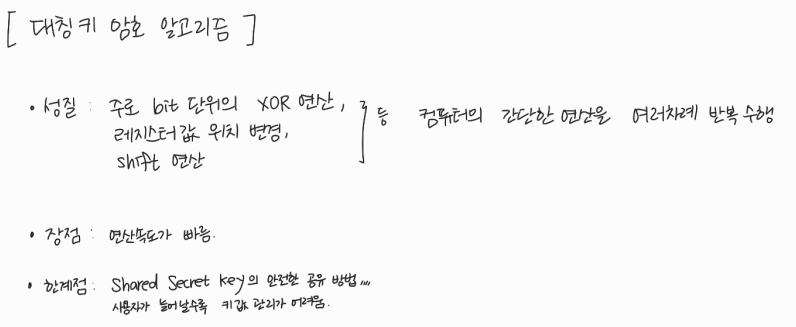 [ 대칭키 암호 알고리즘 ]
• 성질 : 주로 bit 단위의 XOR 연산,
레지스터값 위치 변경,
shift 연산
등 컴퓨터의 간단한 연산을 여러차례 반복 수행
• 장점 : 연산속도가 빠름.
• 한계점 : Shared Secret key의 안전한 공유 방법,,,,
사용자가 늘어날수록 키값 관리가 어려움.